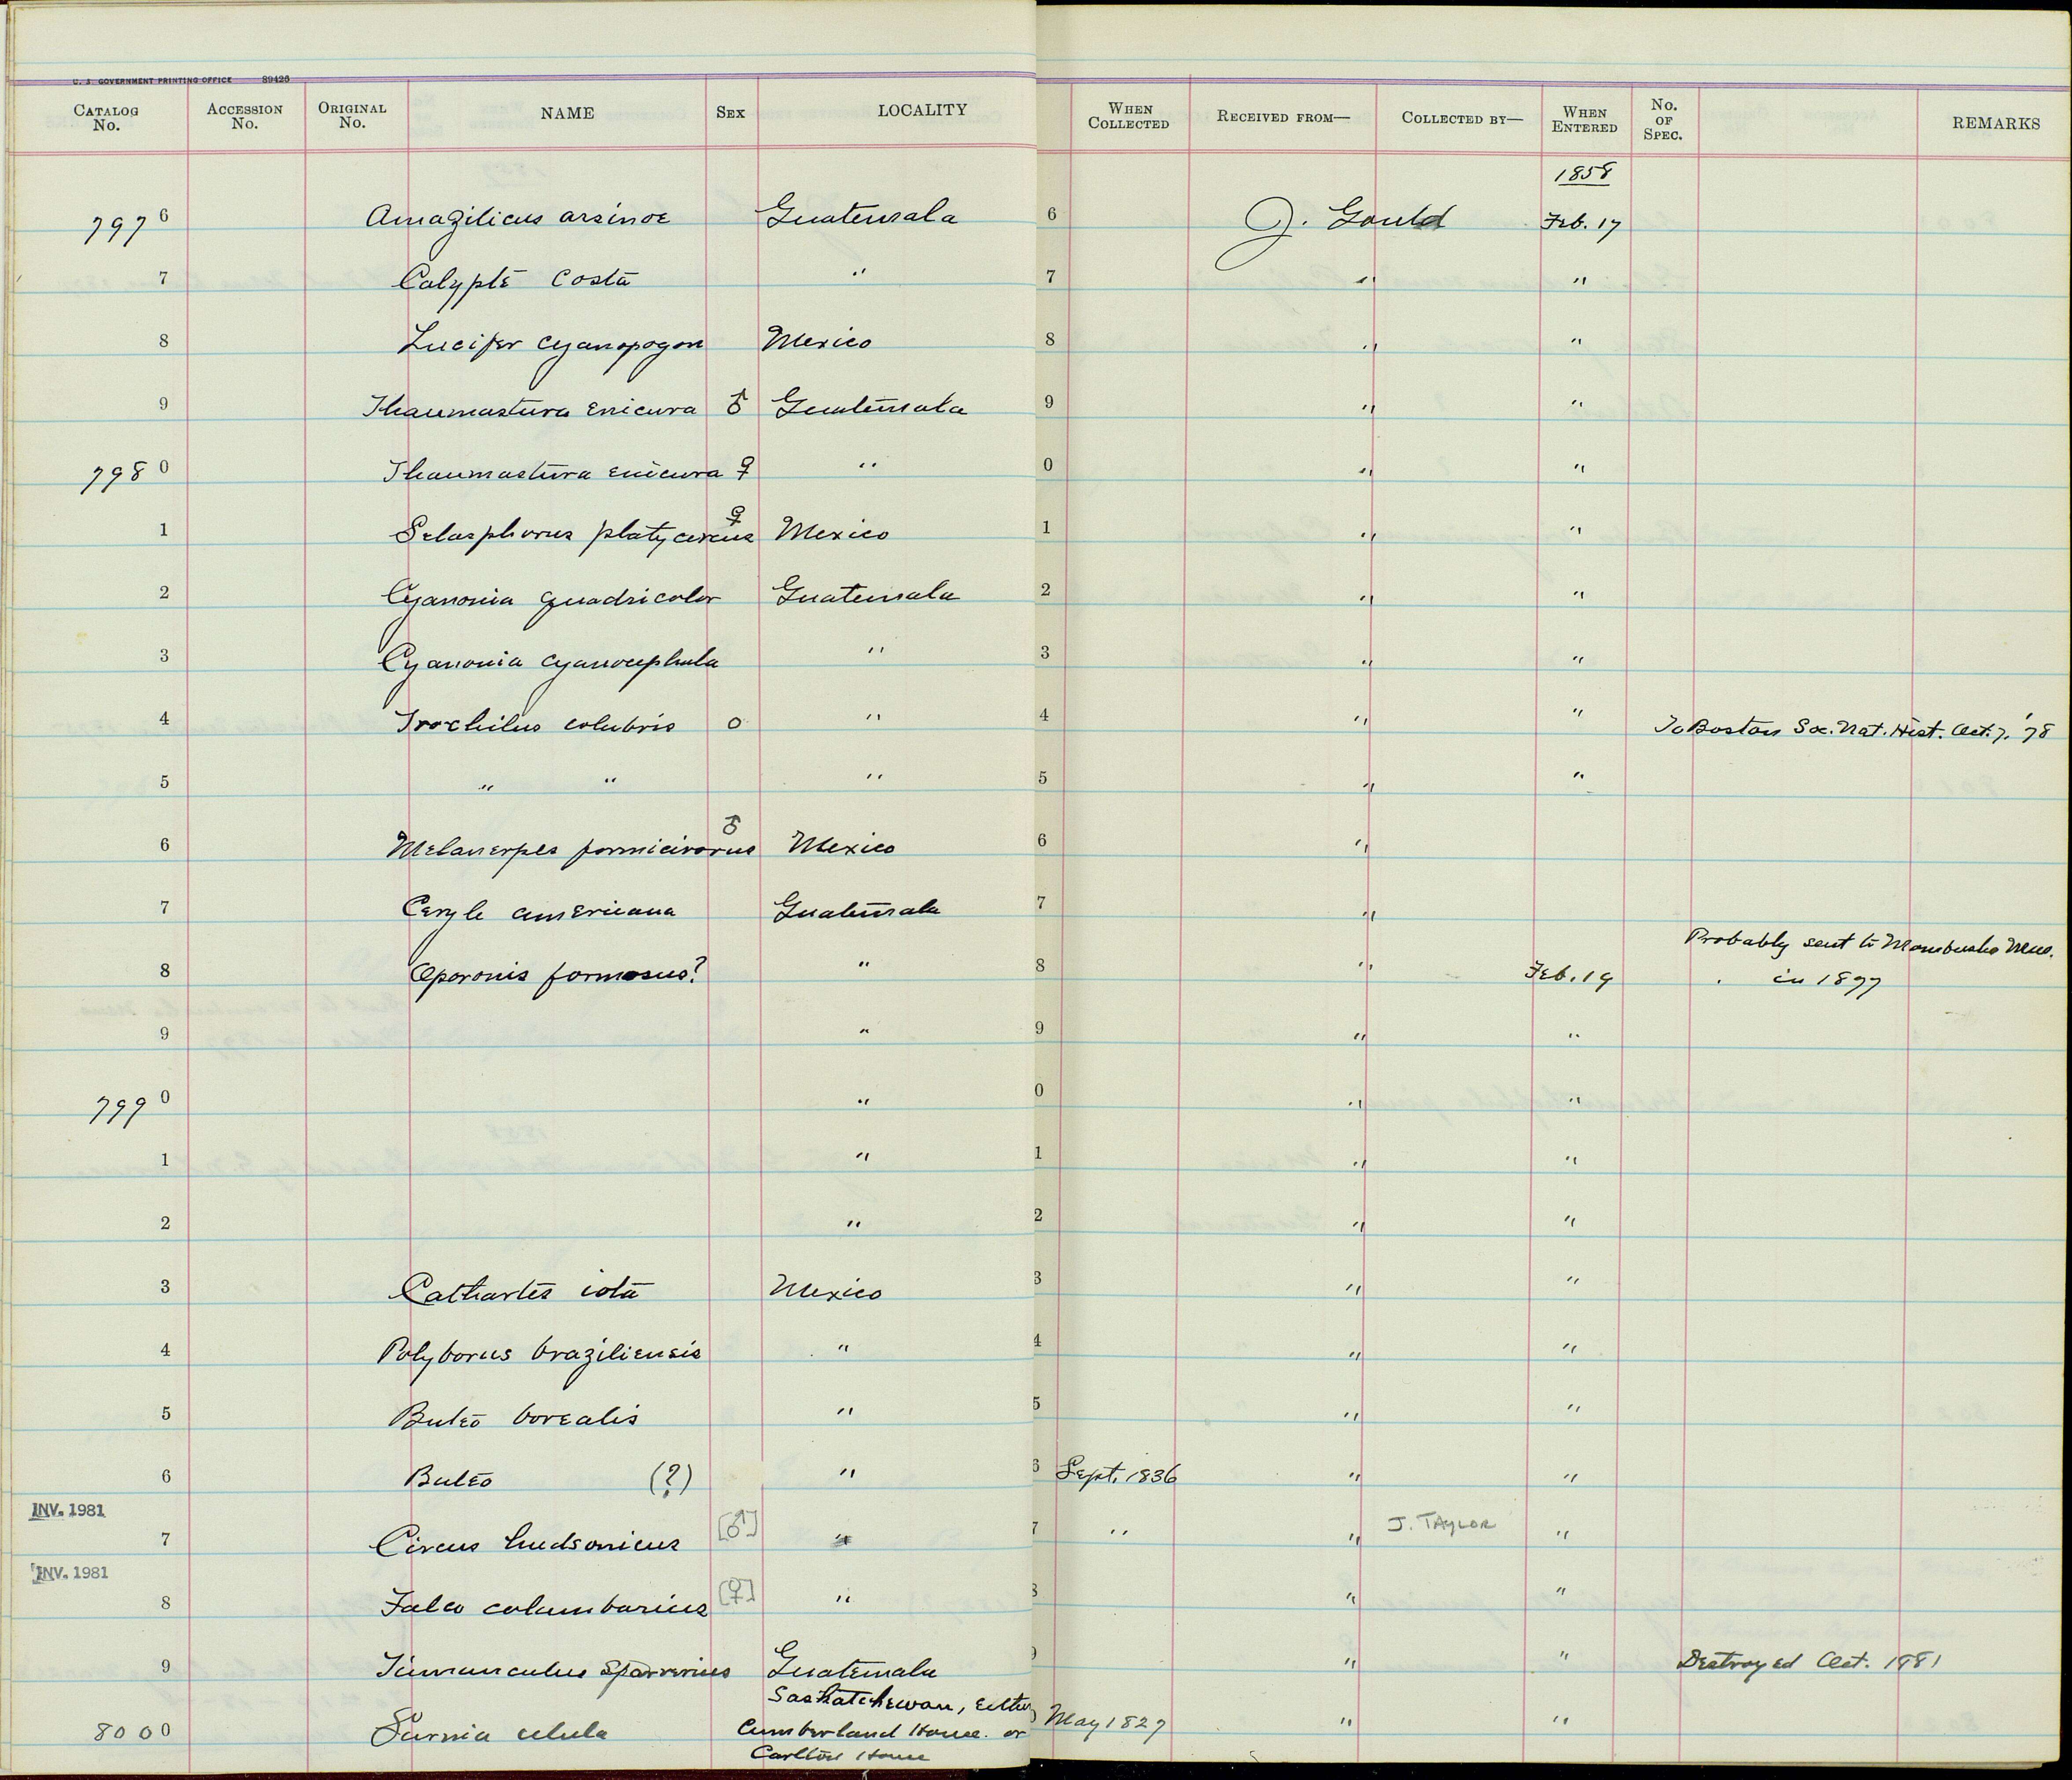 U. S. GOVERNMENT PRINTING OFFICE 89426
CATALOG No. ACCESSION No. ORIGINAL No. NAME SEX LOCALITY WHEN COLLECTED RECEIVED FROM— COLLECTED BY— WHEN ENTERED No. OF SPEC. REMARKS
1858
797 6 Amazilicus arsinoe Guatemala 6 J. Gould Feb. 17
7 Calypte Costa " 7 " "
8 Lucifer cyanopogon Mexico 8 " "
9 Thaumastura enicura ♂ Guatemala 9 " "
798 0 Thaumastura enicura ♀ " 0 " "
1 Selasphorus platycercus ♀ Mexico 1 " "
2 Cyanomia quadricolor Guatemala 2 " "
3 Cyanomia cyanocephala " 3 " "
4 Trochilus colubris O " 4 " " To Boston Soc. Nat. Hist. Oct. 7, '78
5 " " " 5 " "
6 Melanerpes formicivorus ♂ Mexico 6 "
7 Ceryle americana Guatemala 7 "
Probably sent to Mombusho Mus.
8 Oporonis formosus? " 8 " Feb. 19 " in 1877
9 " 9 " "
799 0 " 0 " "
1 " 1 " "
2 " 2 " "
3 Cathartes iota Mexico 3 " "
4 Polyborus braziliensis " 4 " "
5 Buteo borealis " 5 " "
6 Buteo (?) " 6 Sept. 1836 " "
INV. 1981
7 Circus hudsonicus [♂] " 7 " " J. TAYLOR "
INV. 1981
8 Falco columbarius [♀] " 8 " "
9 Tinnunculus sparverius Guatemala 9 " " Destroyed Oct. 1881
Saskatchewan, either
800 0 Surnia ulula Cumberland House. or May 1827 " "
Carlton House